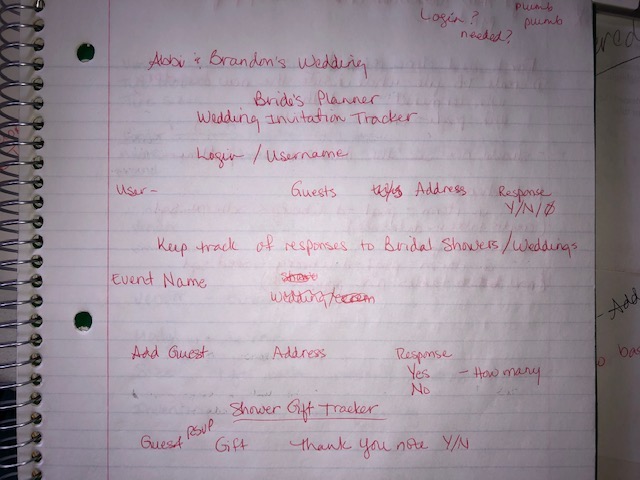 plumb
Login? plumb
needed?
Abby & Brandon's Wedding
Bride's Planner
Wedding Invitation Tracker
Login / Username
User - Guests Address Response
Y/N/Ø
Keep track of responses to Bridal Showers/Weddings
Event Name
Wedding/
Add Guest Address Response
Yes - How many
No
Shower Gift Tracker
Guest RSVP Gift Thank you note Y/N
- Add
bas